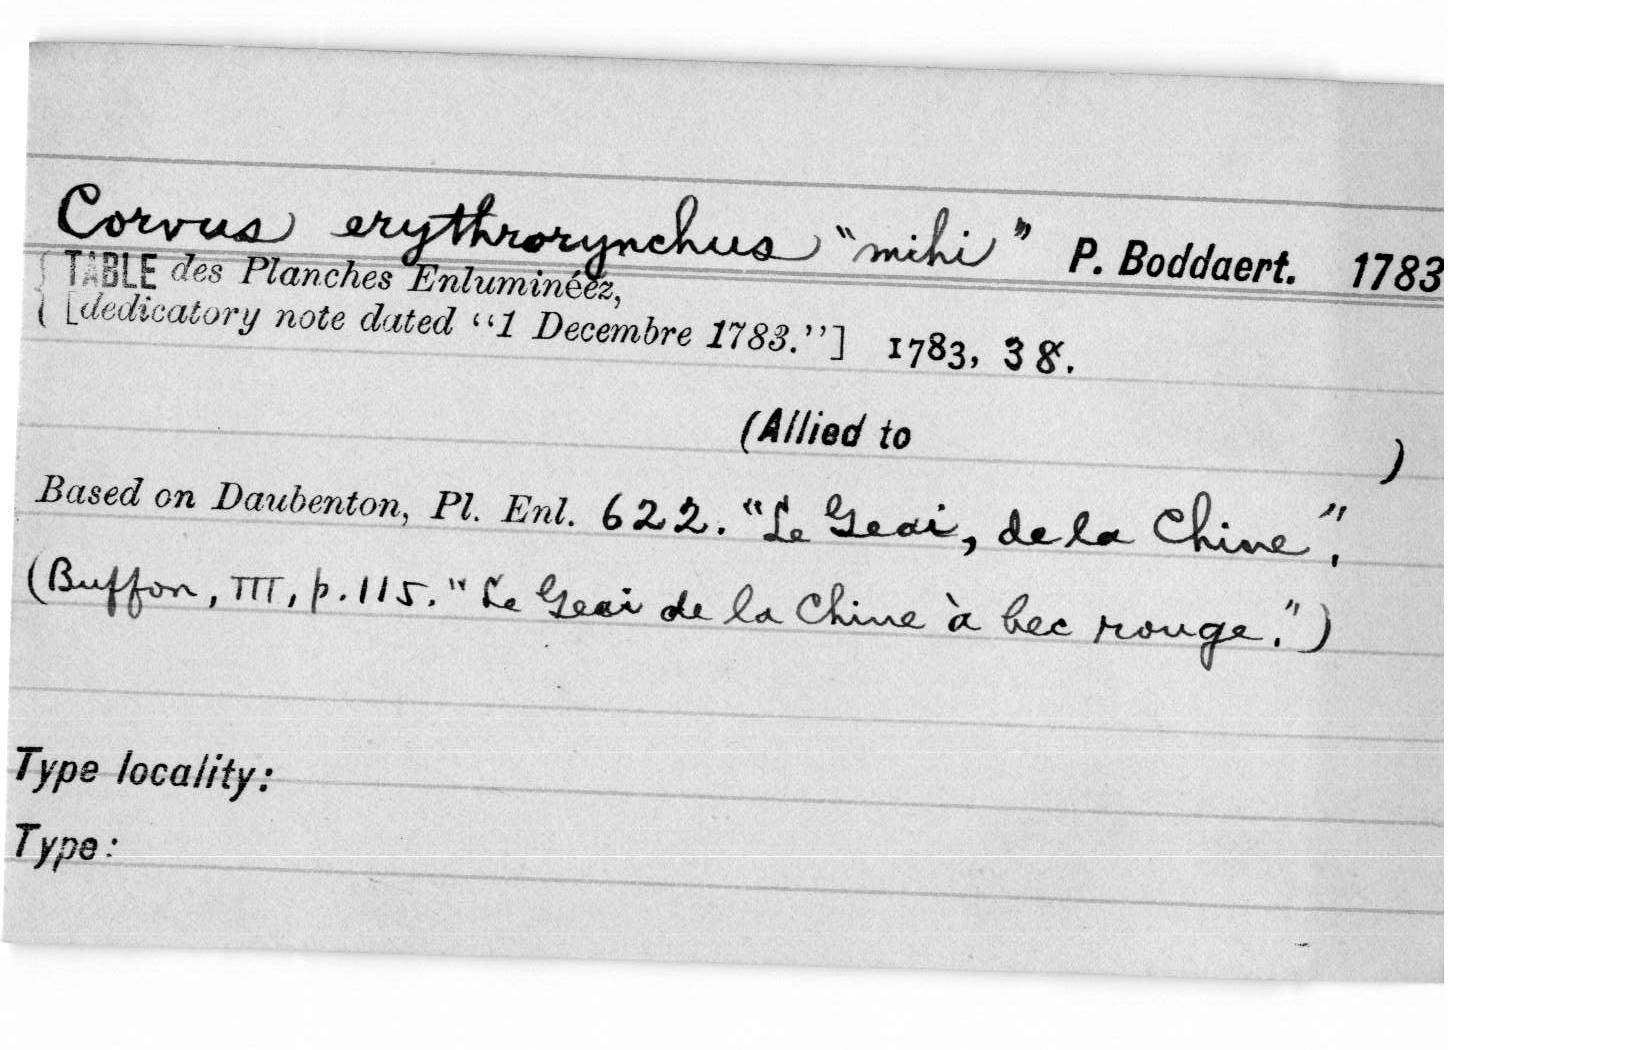 Corvus erythrorynchus "mihi" P. Boddaert. 1783
{ TABLE des Planches Enluminéez,
{ [dedicatory note dated "1 Decembre 1783."] 1783, 38.
(Allied to )
Based on Daubenton, Pl. Enl. 622. "Le Geai, de la Chine".
(Buffon, III, p. 115. "Le Geai de la Chine à bec rouge.")
Type locality:
Type: